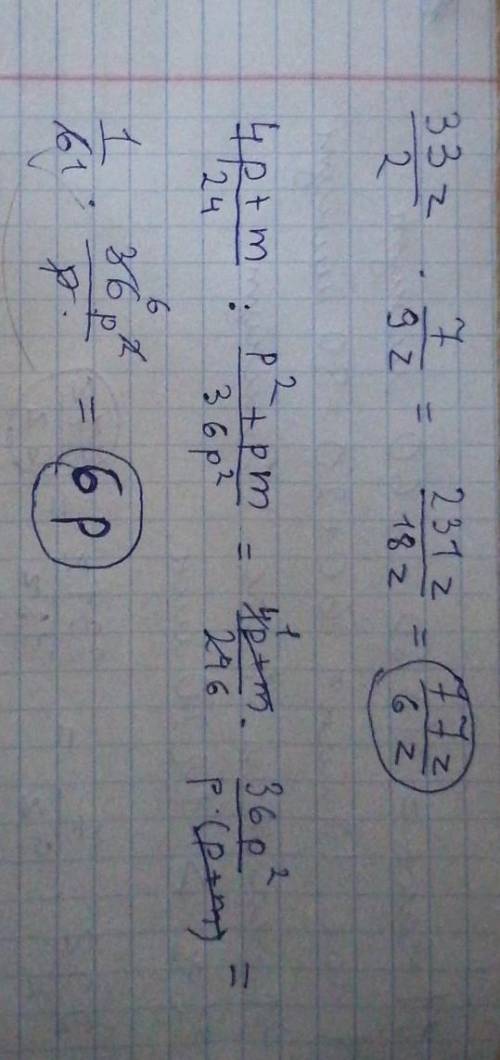 33z/2 · 7/9z = 231z/18z = 77z/6z
4p+m/24 : p²+pm/36p² = 4p+m/24 1 6 · 36p²/p·(p+m) =
1/6 1 : 36 6 p²/p · = 6p